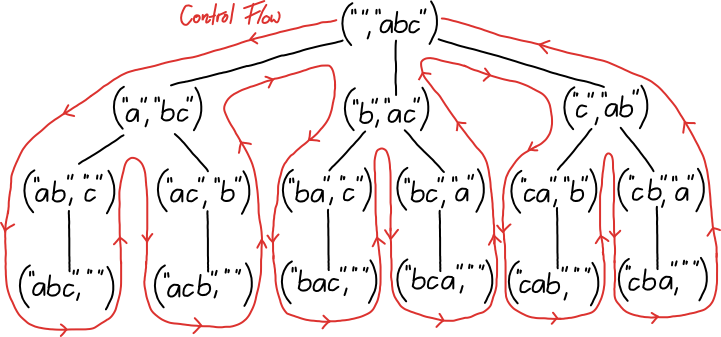 Control Flow
("","abc")
("a","bc")
("b","ac")
("c","ab")
("ab","c")
("ac","b")
("ba","c")
("bc","a")
("ca","b")
("cb","a")
("abc,"")
("acb,"")
("bac,"")
("bca,"")
("cab,"")
("cba,"")